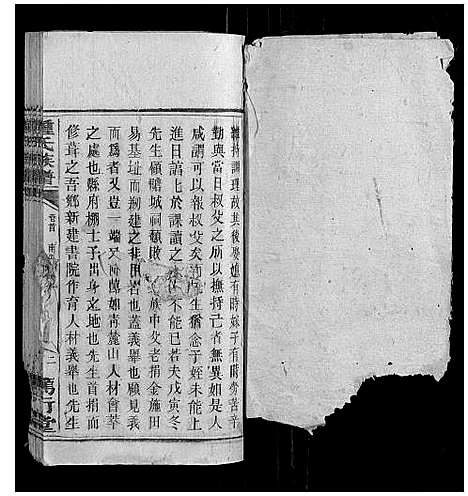 維持調理故其後婆媳有時妯子有時勞苦辛
勤與當日叔父之所以撫持亡者無異如是人
咸謂可以報叔父矣而先生猶念子姪未能上
進日諳上於課讀之不能已若夫戊寅冬
先生傾貲城祠頹敗族中父老捐金施田
易基址而剏建之非者也蓋義舉也願見義
而為者又豈一端又如青麓山人材會萃
之處也縣府棚士子出身之地也先生首捐而
修葺之吾鄉新建書院作育人材義舉也先生
鍾氏族譜
卷首
萬
堂